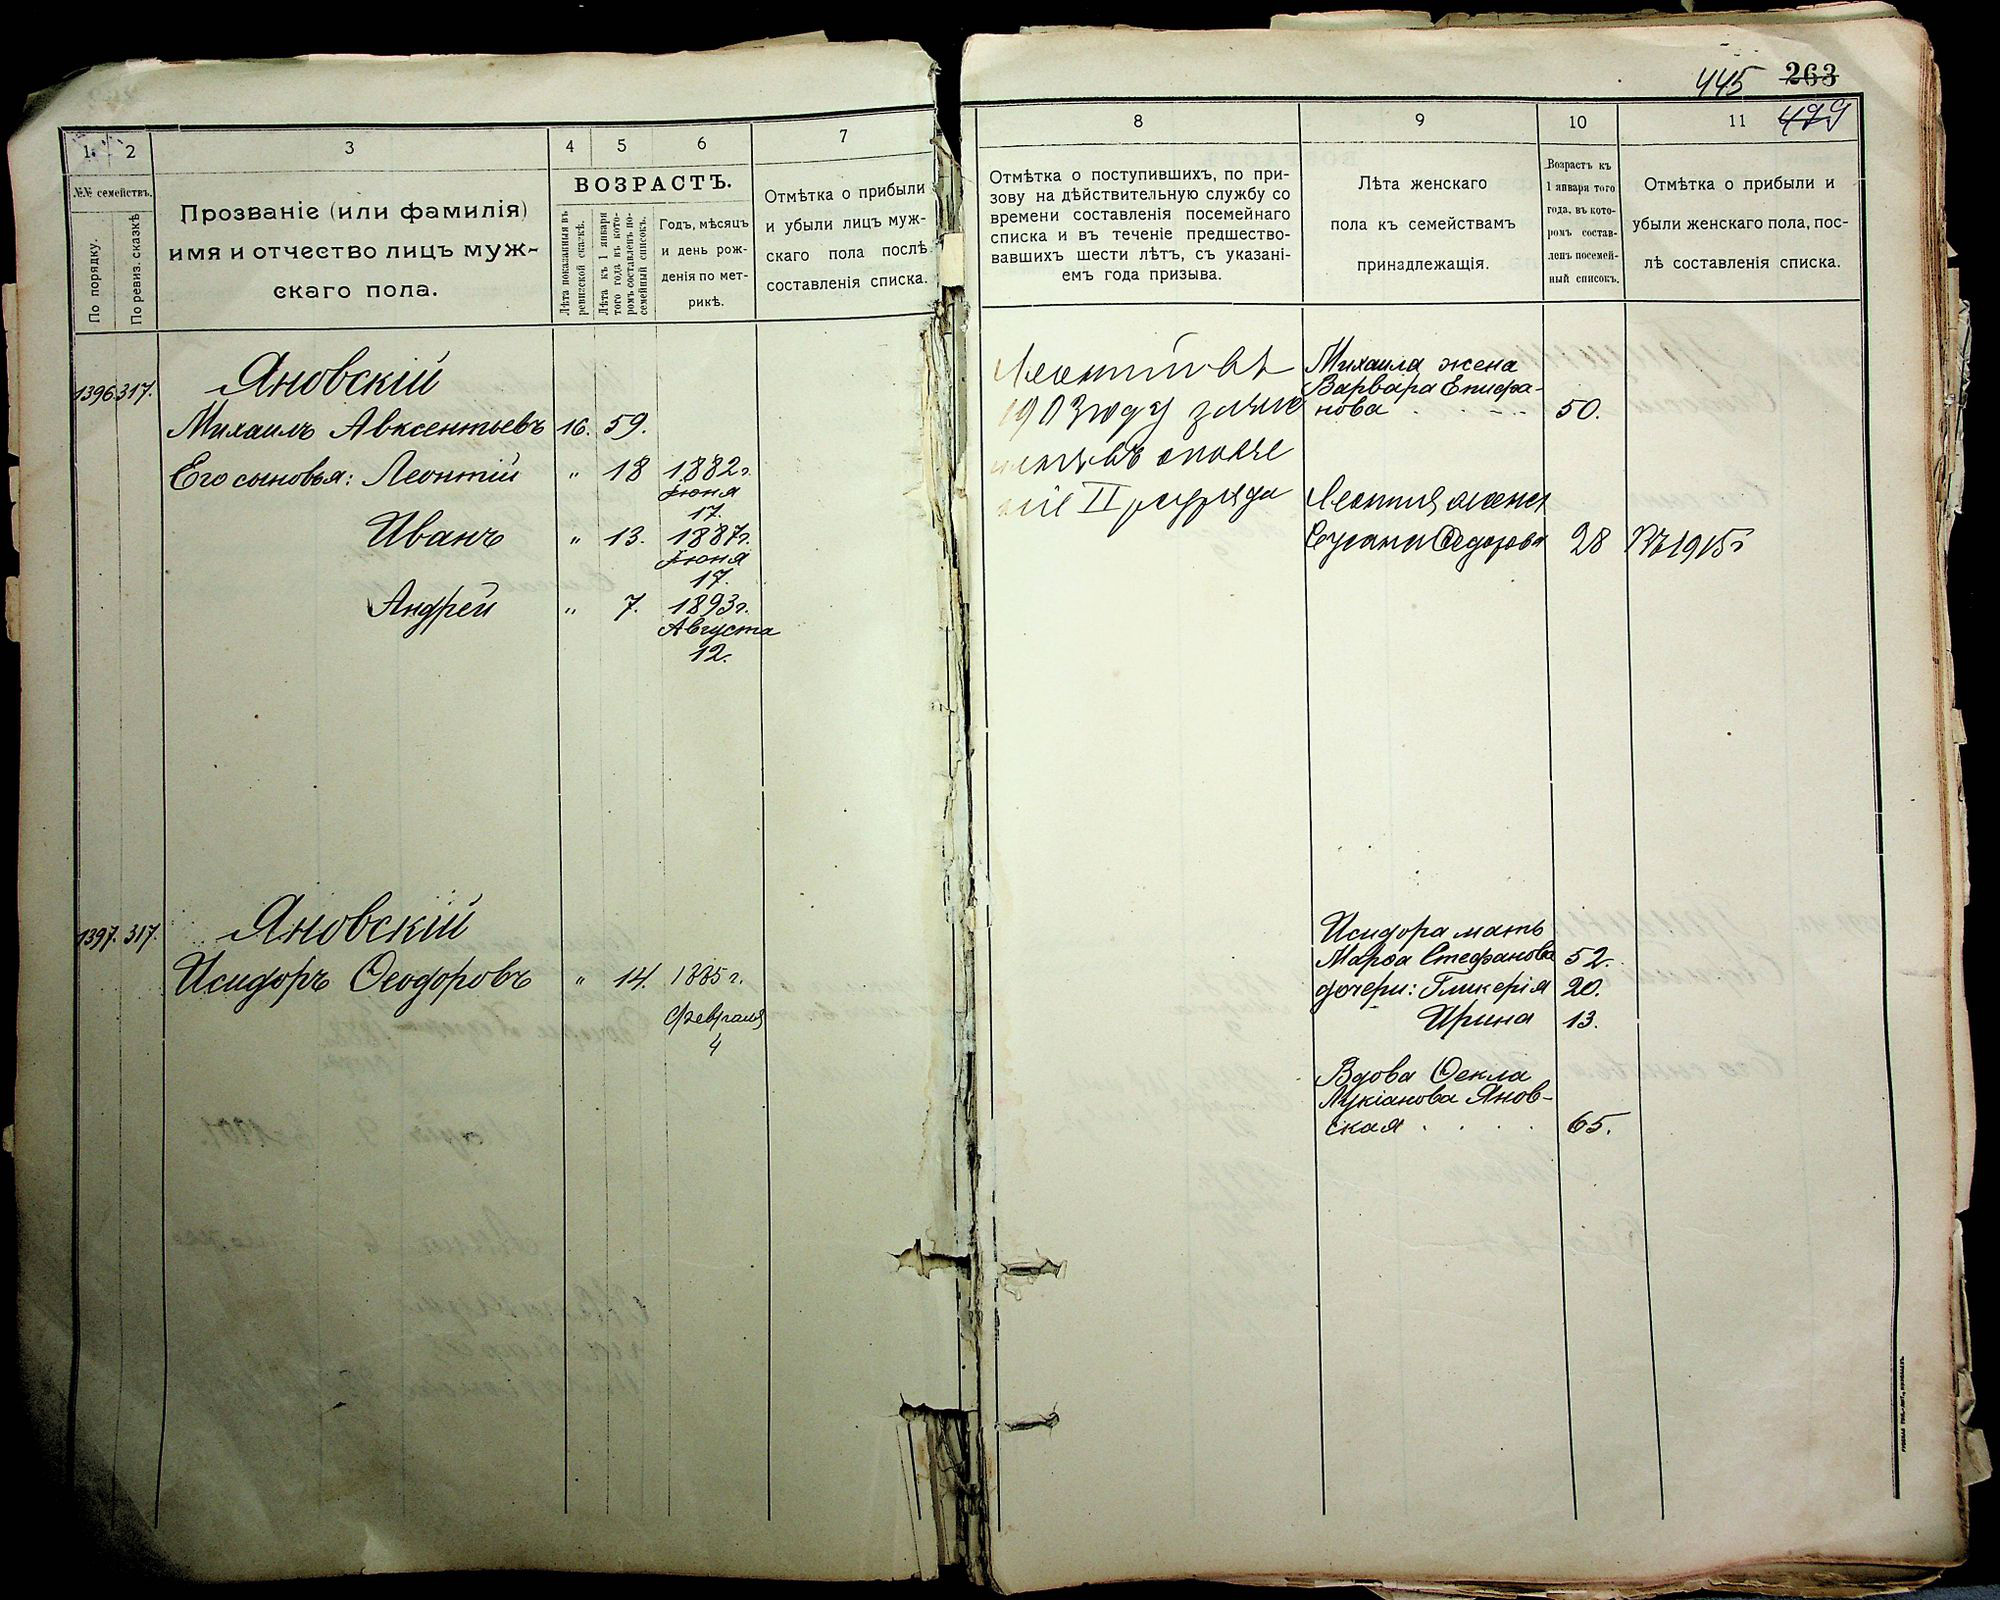 445 263
479
1. 2 3 4 5 6 7
№№ семействъ.
По порядку.
По ревиз. сказкѣ
Прозваніе (или фамилія)
имя и отчество лицъ муж-
скаго пола.
ВОЗРАСТЪ.
Лѣта показанныя въ
ревизской сказкѣ.
Лѣта къ 1 января
того года въ кото-
ромъ составленъ по-
семейный списокъ.
Годъ, мѣсяцъ
и день рож-
денія по мет-
рикѣ.
Отмѣтка о прибыли
и убыли лицъ муж-
скаго пола послѣ
составленія списка.
1396 317. Яновскій
Михаилъ Авксентьевъ 16. 59.
Его сыновья: Леонтій " 18 1882 г.
Іюня
17.
Иванъ " 13. 1887 г.
Іюня
17.
Андрей " 7. 1893 г.
Августа
12.
1397. 317. Яновскій
Исидоръ Ѳеодоровъ " 14. 1885 г.
Февраля
4
8 9 10 11
Отмѣтка о поступившихъ, по при-
зову на дѣйствительную службу со
времени составленія посемейнаго
списка и въ теченіе предшество-
вавшихъ шести лѣтъ, съ указані-
емъ года призыва.
Лѣта женскаго
пола къ семействамъ
принадлежащія.
Возрастъ къ
1 января того
года, въ кото-
ромъ состав-
ленъ посемей-
ный списокъ.
Отмѣтка о прибыли и
убыли женскаго пола, пос-
лѣ составленія списка.
Леонтій въ
1903 году
II разряда
Михаила жена
Варвара Епифа-
нова . . - - - 50.
Леонтія жена
Сусанна Ѳедорова 28 Въ 1915 г
Исидора мать
Марѳа Стефанова 52.
дочери: Гликерія 20.
Ирина 13.
Вдова Ѳекла
Лукіанова Янов-
ская . . . . 65.